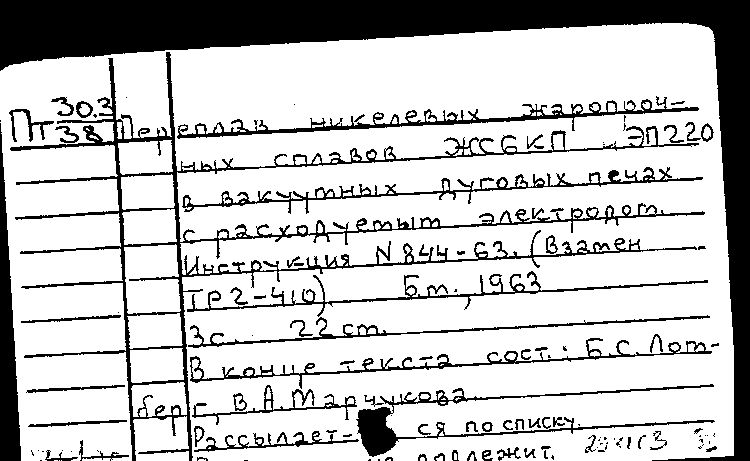 Пт 30.3/38 Переплав никелевых жаропроч-
ных сплавов ЖС6КП и ЭП220
в вакуумных дуговых печах
с расходуемым электродом.
Инструкция N 844-63. (Взамен
ТР2-410). Б.м., 1963
3с. 22 см.
В конце текста сост.: Б.С. Лом-
берг, В.А. Марчукова.
Рассылает- ся по списку.
подлежит.